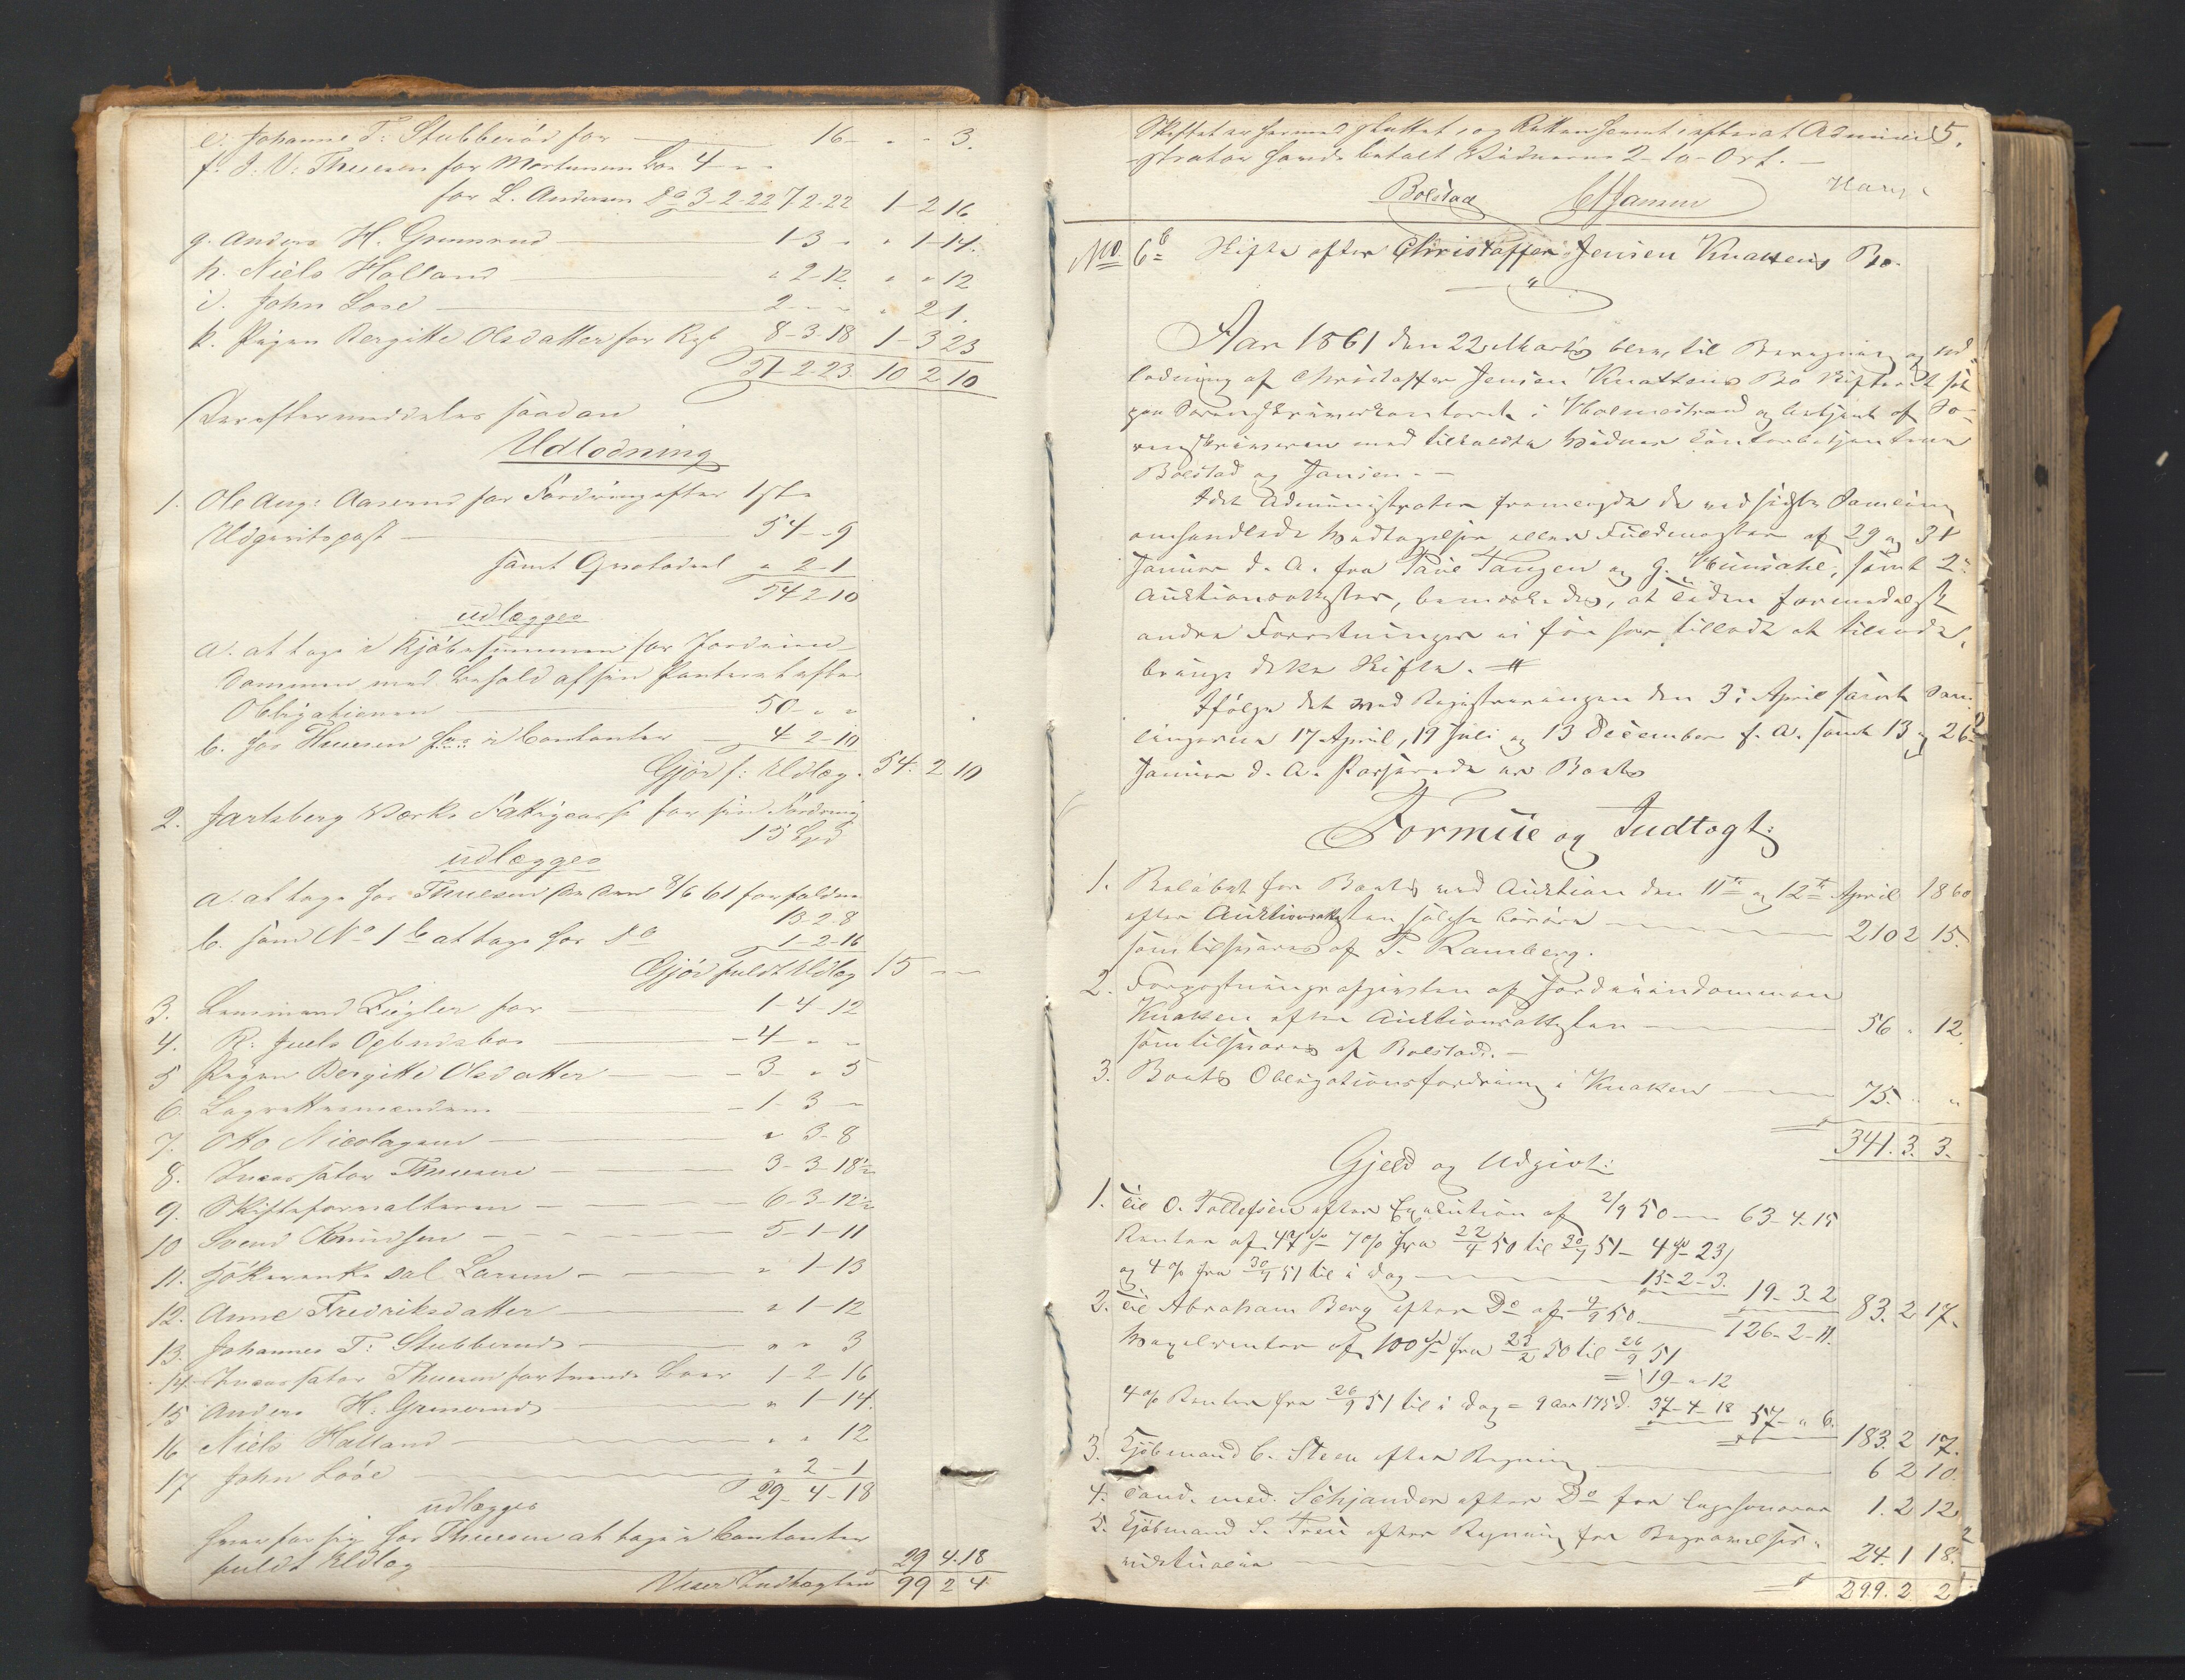 e. Johanne T: Stubberöd for 16 - - - 3.
f. J. V: Thuesen for Mortensens Bo 4 - -
for L. Andersen Do 3-2-22 7-2-22 1-2 16
g. Anders H. Grennerud 1-3 - " 1-14.
h. Niels Holland " 2-12 " " 12
i. John Lööe 2 - - " 2 1.
k. Pigen Bergitte Olsdatter for 8-3-18 1-3 23
51-2-23. 10 2 10
Derefter meddeles saadan
Udlodning
1. Ole Aug: Aaserud for Fordring efter 1ste
Udgiftspost 54 - - 9
samt Qvotadeel " 2-1
54 2-10
udlægges
a. at tage i Kjöbesummen for Jordeien-
dommen med Behold af sin Panteret efter
Obligationen 50 - " "
b. hos Thuesen i Contanter 4 2-10
Gjör f: Udlæg. 54. 2 10
2. Jarlsberg Værks Fattigcasse for sin Fordring
15 Spd
udlægges
a. at tage hos Thuesen 8/6 61 forfaldne
13-2-8
b. som No 1 b at tage hos Do 1-2-16
Gjör fuldt Udlæg 15 - -
3. Lensmand Ziegler for 1-4-12
4. R: Juels Opbudsbo - 4 - -
5 Pigen Bergitte Olsdatter - 3 - " 5
6. Lagrettesmændene - 1-3 -
7. Otto Nicolaysen " 3-8
8. Incassator Thuesen 3-3-18½
9. Skifteforvalteren 6-3-12½
10 Svend Knudsen 5-1-11
11. sal. Larsen " 1-13
12. Anne Fredriksdatter " 1-12
13. Johannes T: Stubberud " " 3
14. Incassator Thuesen for tvende Boer 1-2-16
15 Anders H: Grennerud " 1-14.
16 Niels Holland " " 12
17 John Lööe " 2-1
29-4-18
udlægges
hver for sig hos Thuesen at tage i Contanter
fuldt Udlæg 29 4.18
Viser Indtægten 99 2 4
Skiftet er hermed sluttet, og Retten hævet efterat Admini 5.
strator havde betalt Vidnerne 2 - to - Ort. -
Bolstad CJansen
No 6b Skifte efter Christoffer Jensen Knattens Bo.
Aar 1861 den 22 Marts blev, til Beregning og Ud-
lodning af Christoffer Jensen Knattens Bo Skifteret sat
paa Sorenskriverkontoret i Holmestrand og betjent af So-
renskriveren med tilkaldte Vidner Contorbetjentene
Bolstad og Jansen. -
Idet Administrator fremlagde de ved sidste Samling
omhandlede Modtagelser eller Fuldmagter af 29 og 31
Januar d. A. fra Paul Tangen og G. samt 2de
Auktionsattester, bemærkedes, at Tiden formedelst
andre Forretninger ei för har tilladt at tilende-
bringe dette Skifte. -
Ifölge det ved Registreringen den 3. April samt Sam-
lingerne 17 April, 19 Juli og 13 December f. A. samt 13 og 26
Januar d. A. Passerede er Boets
Formue og Indtægt:
1. Belöbet for Boets ved Auktion den 11te og 12te April 1860
efter Auktionsattesten solgte Löseöre 210 2 15.
som tilsvares af P. Ramberg.
2. Forpagtningsafgivten af Jordeiendommen
Knatten efter Auktionsattesten 56 " 12.
som tilsvares af Bolstad. -
3. Boets Obligationsfordring i Knatten 75. " "
341. 3. 3.
Gjeld og Udgivt:
1. Til O. Tollefsen efter Exekution af 2/9 50 63-4-15
Renter af 47 7% fra 22/4 50 til 30/9 51 - 4 - 23
og 4% fra 30/9 51 til i dag 15-2-3. 19-3-2 83. 2 17.
2. Til Abraham Berg efter Do af 9/9 50 126-2-11.
Vexelrenter af 100 fra 23/2 50 til 26/9 51
= 19 - " - 12
4% Renter fra 26/9 51 til i dag = 9 Aar 175 d. 37-4-18 57 - " 6. 183. 2 17.
3. Kjöbmand C. Steen efter Regning 6 2 10.
4. Cand. med. Schjander efter Do for Lægehonorar 1. 2 12
5. Kjöbmand S. efter Regning for Begravelses-
24. 1 18.
299. 2 2